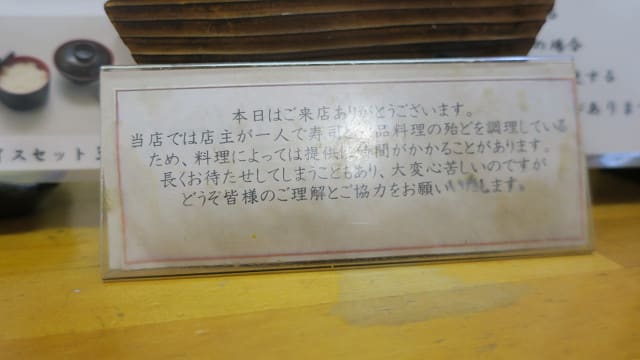 の場合
する
がありま
イスセット
本日はご来店ありがとうございます。
当店では店主が一人で寿司と一品料理の殆どを調理している
ため、料理によっては提供に時間がかかることがあります。
長くお待たせしてしまうこともあり、大変心苦しいのですが
どうぞ皆様のご理解とご協力をお願いいたします。